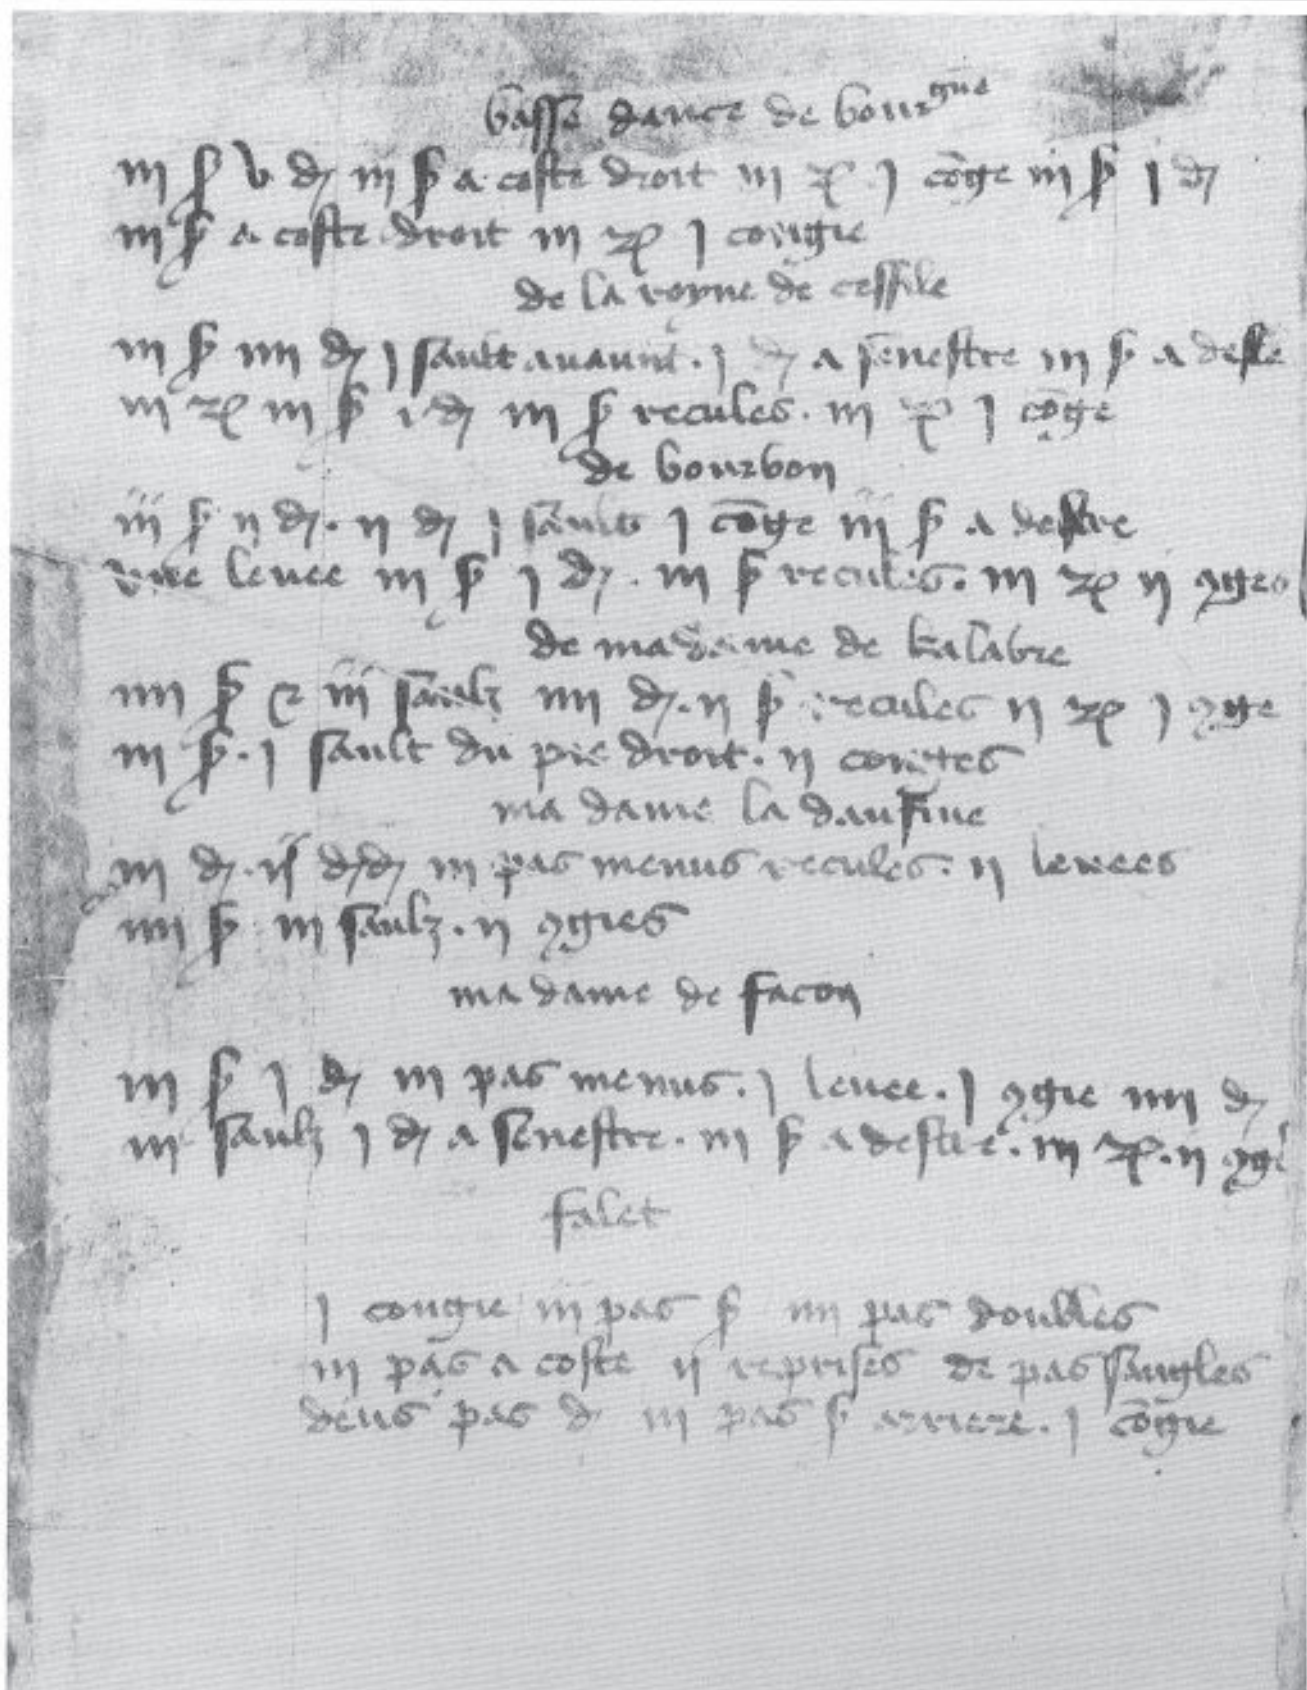 basse dance de bourgne
iij s v d iij s a coste droit iij r j cōge iij s j d
iij s a coste droit iij r j congie
de la royne de cessile
iij s iiij d j sault avaunt. j d a senestre iij s a deste
iij r iij s j d iij s recules. iij r j cōge
de bourbon
iij s ij d. ij d j saults j cōge iij s a destre
une levee iij s j d. iij s recules. iij r ij ꝯges
de madame de kalabre
iiij s & iij saulz iiij d. ij s recules ij r j ꝯge
iij s. j sault du pie droit. ij congies
ma dame la daufine
iij d. d iij pas menus recules. ij levees
iiij s iij saulz. ij ꝯgies
ma dame de facon
iij s j d iij pas menus. j levee. j ꝯgie iiij d
iij saulz j d a senestre. iij s a destre. iij r. ij ꝯge
falet
j congie iij pas s iiij pas doubles
iij pas a coste ij reprises de pas sangles
deus pas d iij pas s arriere. j cōgie